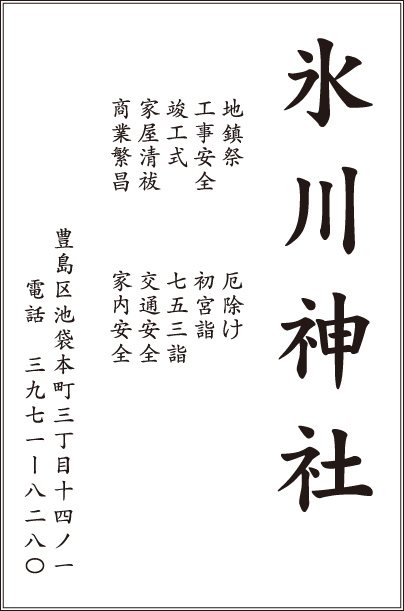 氷川神社
地鎮祭
工事安全
竣工式
家屋清祓
商業繁昌
厄除け
初宮詣
七五三詣
交通安全
家内安全
豊島区池袋本町三丁目十四ノ一
電話　三九七一ー八二八〇